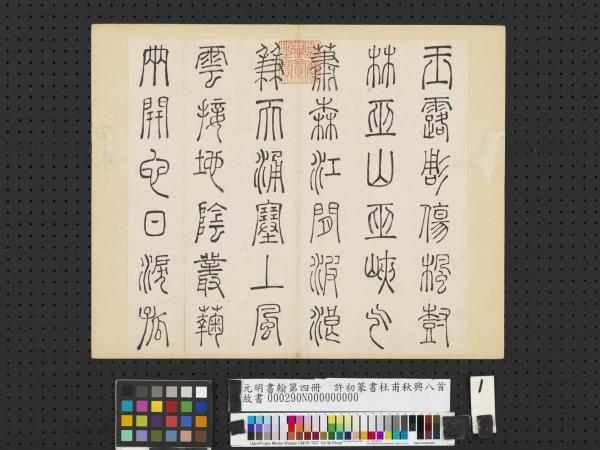 玉露彫傷楓樹
林巫山巫峽气
蕭森江間波浪
兼天涌塞上風
雲接地陰叢蘜
兩開它日淚孤
元明書翰第四冊　許初篆書杜甫秋興八首
故書 000290N000000000
1
Ugra/Fogra Media Wedge CMYK